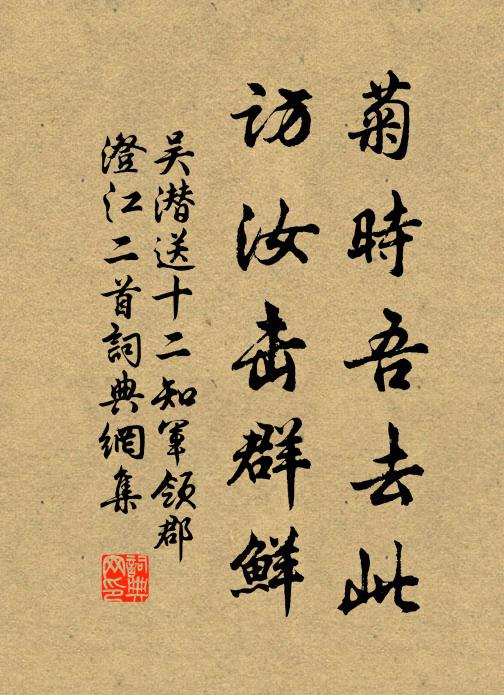 菊時吾去此
访汝击群鮮
吴潜送十二知军领郡
澄江二首詞典網集
詞典网印